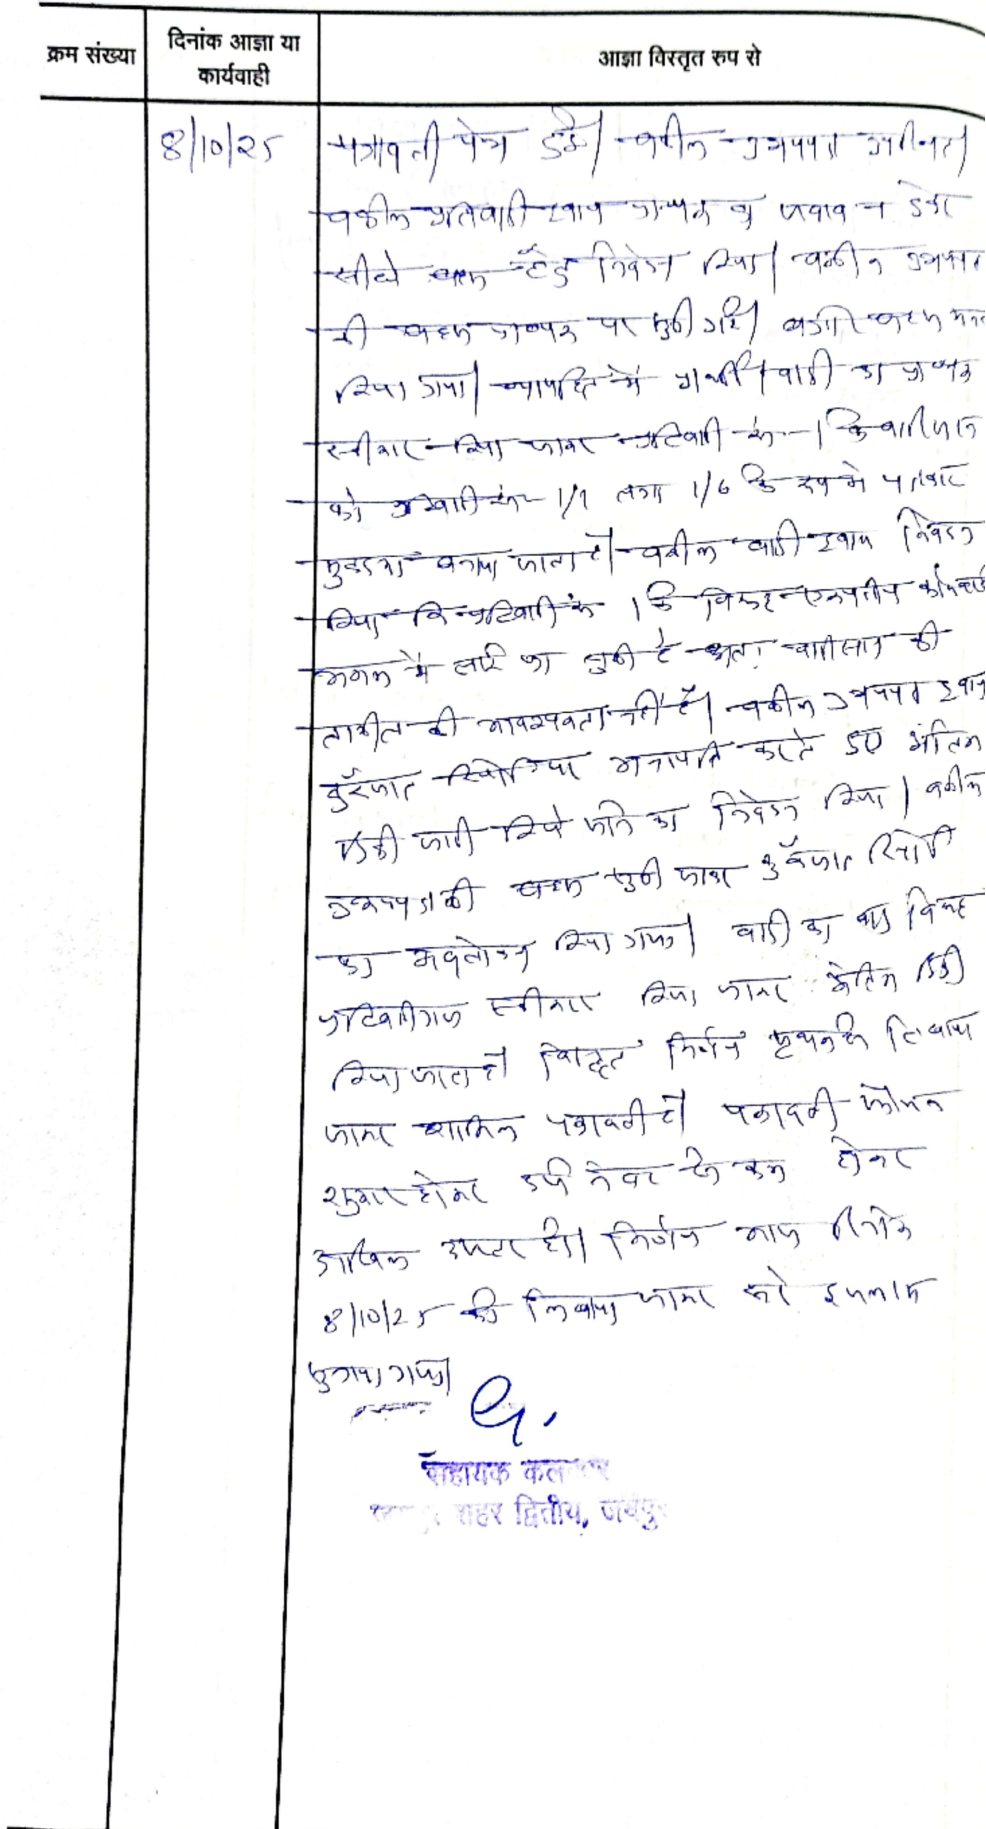 क्रम संख्या
दिनांक आज्ञा या
कार्यवाही
आज्ञा विस्तृत रुप से
8/10/25
पत्रावली पेश हुई। वकील उभयपक्ष उपस्थित।
वकील प्रतिवादी द्वारा प्रा०पत्र का जवाब न देकर
सीधे बहस हेतु निवेदन किया। वकील उभयपक्ष
की बहस प्रा०पत्र पर सुनी गई। बहस
किया गया। न्यायहित में प्रार्थी/वादी का प्रा०पत्र
स्वीकार किया जाकर प्रतिवादी सं० 1 के वारिसान
को प्रतिवादी सं० 1/1 लगा० 1/6 के रूप में पक्षकार
मुकदमा बनाया जाता है। वकील वादी द्वारा निवेदन
किया कि प्रतिवादी सं० 1 के विरूद्ध एकपक्षीय कार्यवाही
अमल में लाई जा चुकी है अतः वारिसान की
तामील की आवश्यकता नहीं है। वकील उभयपक्ष द्वारा
कुर्रेजात रिपोर्ट पर करते हुए अंतिम
डिक्री जारी किये जाने का निवेदन किया। वकील
उभयपक्ष की बहस सुनी जाकर कुर्रेजात रिपोर्ट
का अवलोकन किया गया। वादी का वाद विरूद्ध
प्रतिवादीगण स्वीकार किया जाकर अंतिम डिक्री
किया जाता है। विस्तृत निर्णय पृथक से लिखाया
जाकर शामिल पत्रावली है। पत्रावली फैसल
शुमार होकर दर्ज नंबर से कम होकर
दाखिल दफ्तर हो। निर्णय आज दिनांक
8/10/25 को लिखाया जाकर सरे इजलास
सुनाया गया।
सहायक कलक्टर
शहर द्वितीय, जयपुर